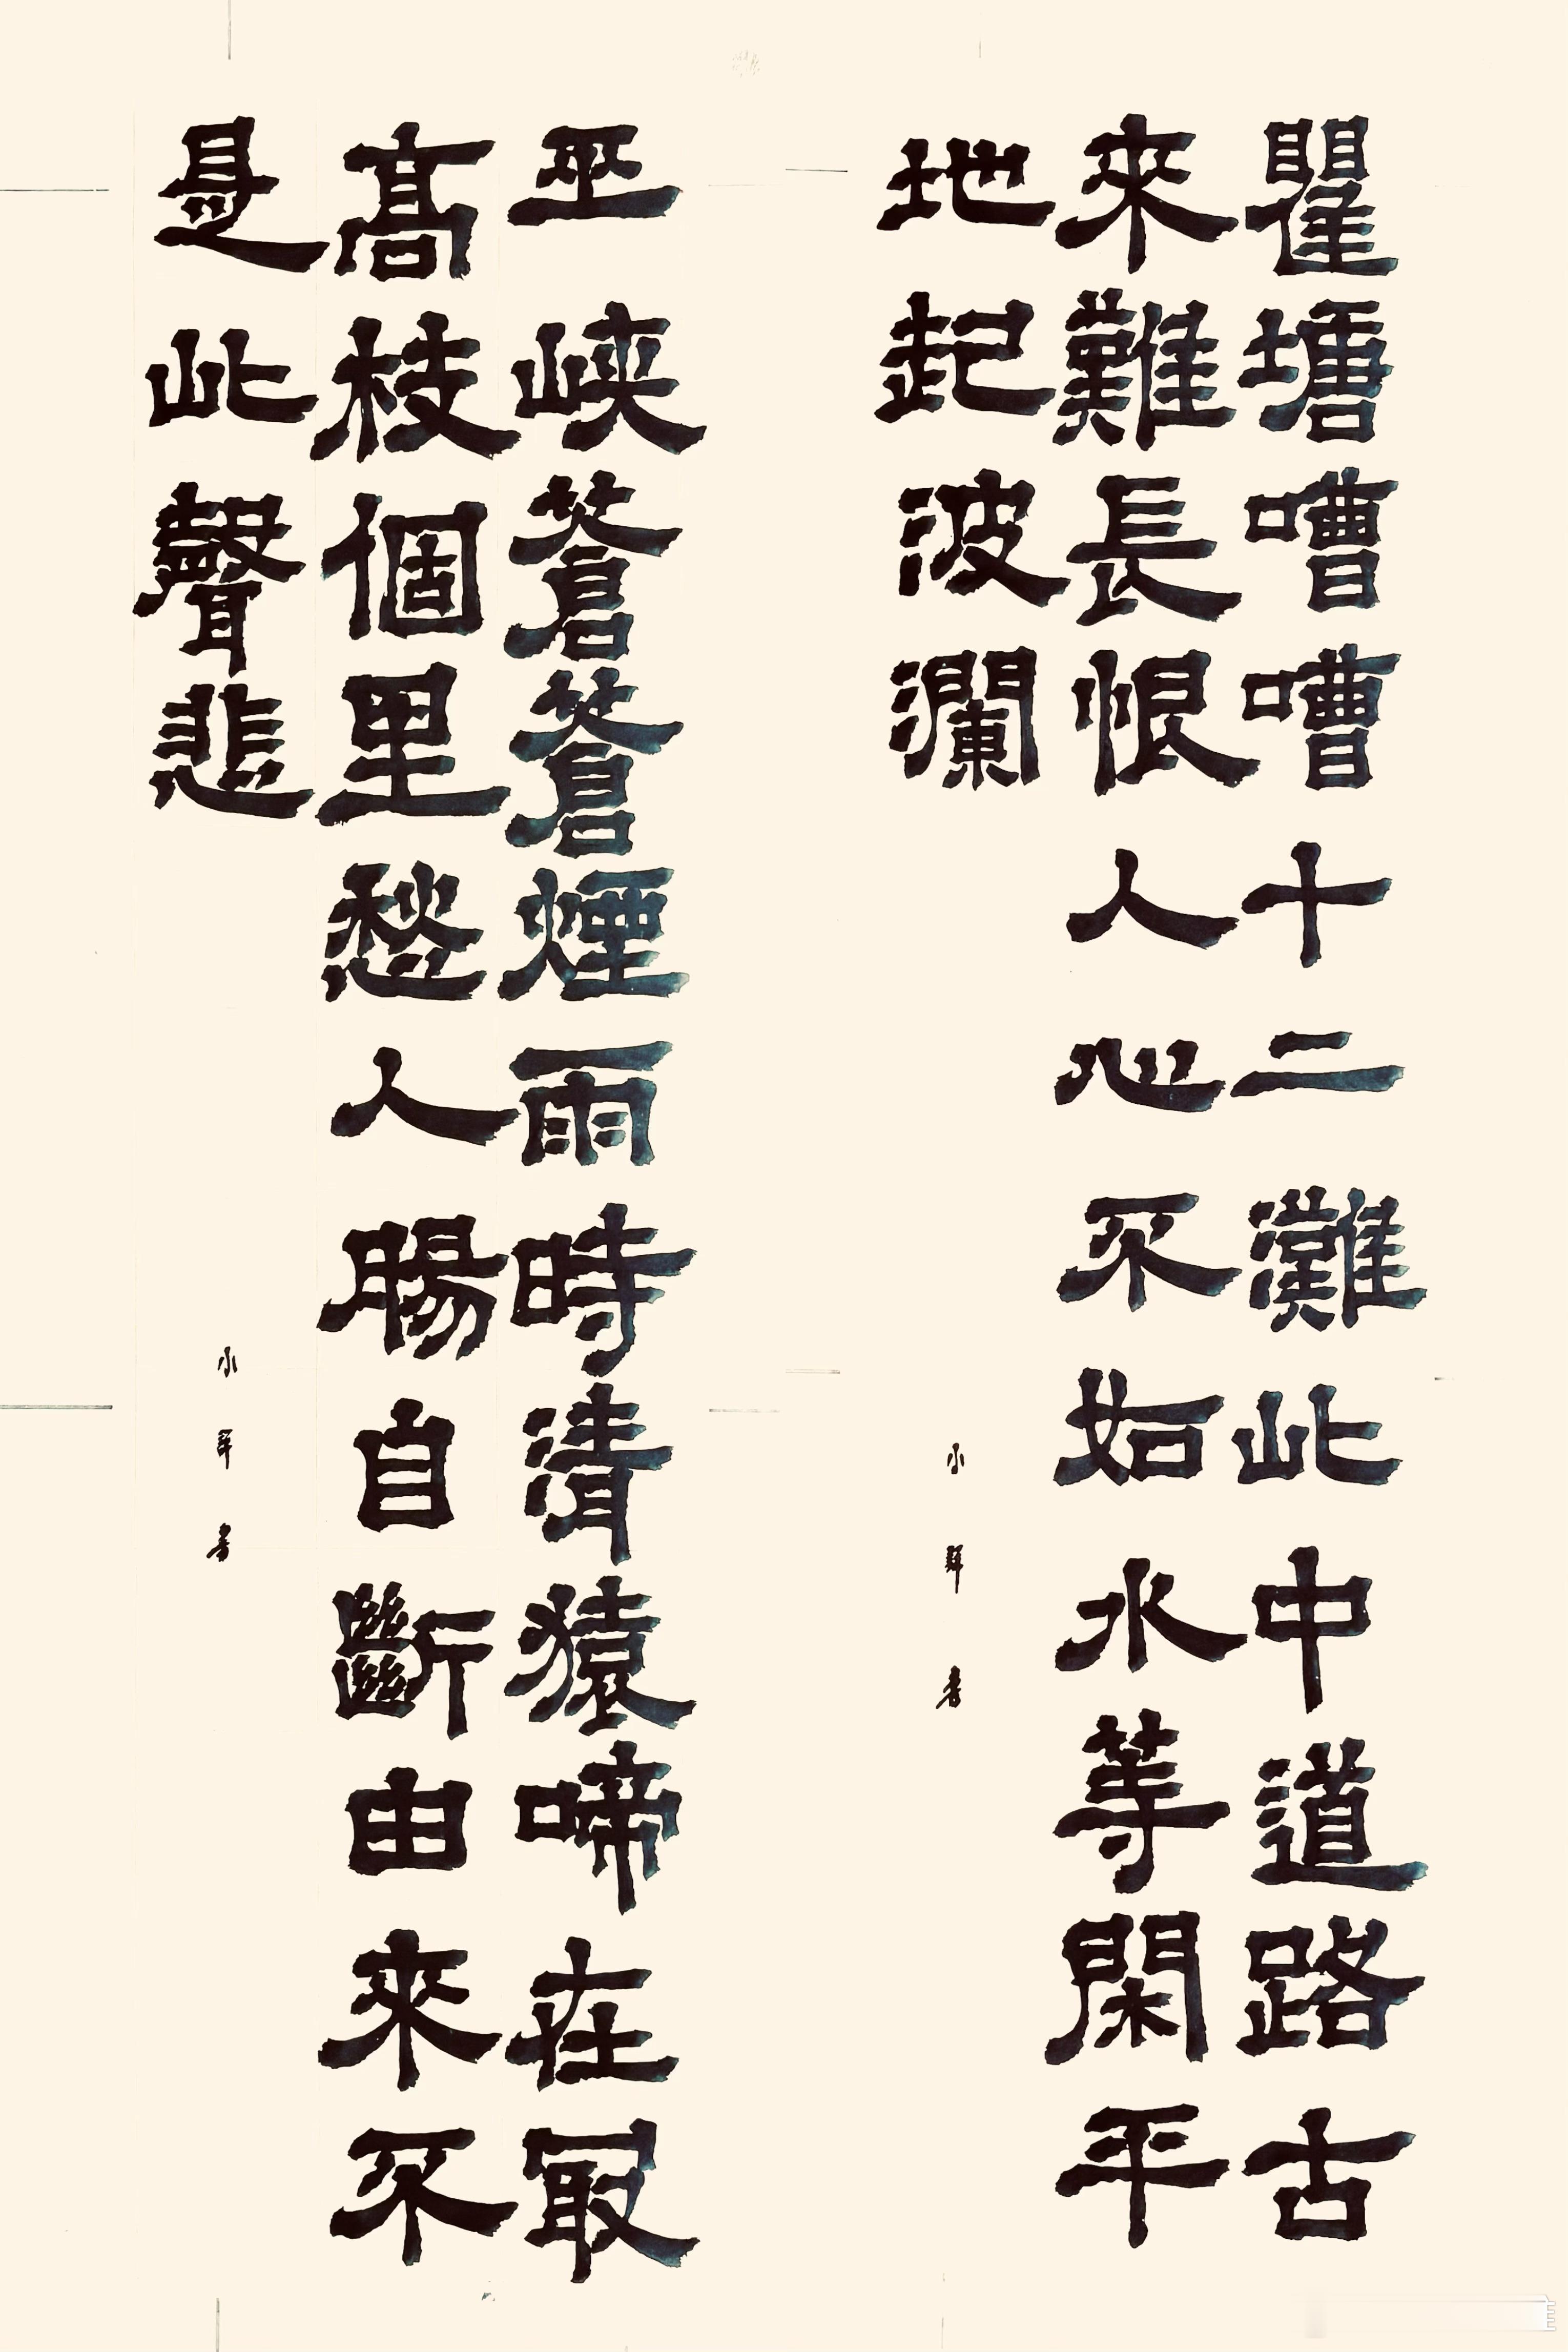 瞿塘嘈嘈十二灘此中道路古
來難長恨人心不如水等閑平
地起波瀾
小 書
巫峽蒼蒼煙雨時清猿啼在最
高枝個里愁人腸自斷由來不
是此聲悲
小 書